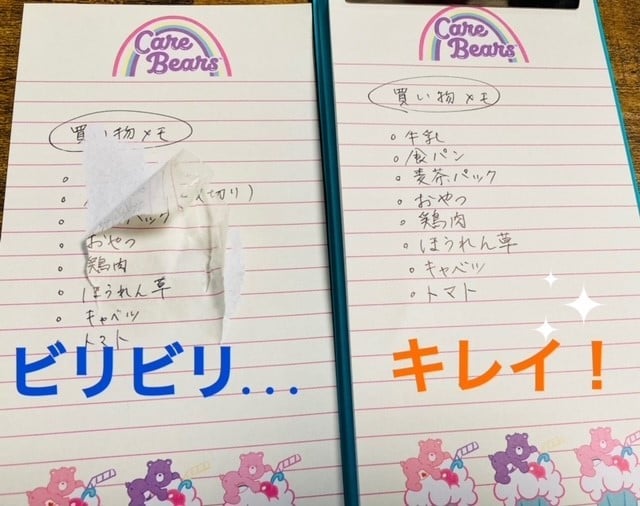 Care
Bears
買い物メモ
切り)
パック
おやつ
鶏肉
ほうれん草
キャベツ
トマト
ビリビリ...
Care
Bears
買い物メモ
牛乳
食パン
麦茶パック
おやつ
鶏肉
ほうれん草
キャベツ
トマト
キレイ!